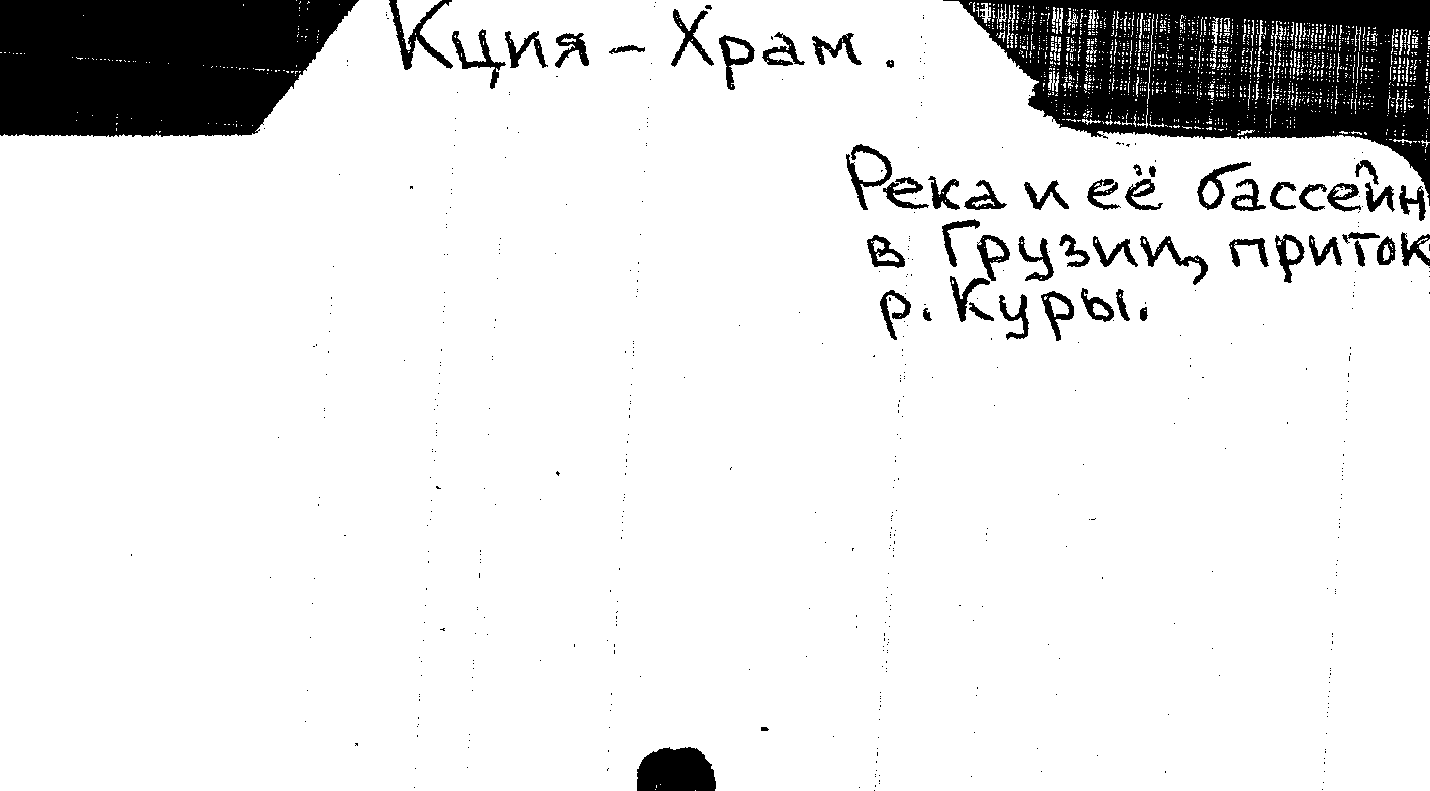 Кция – Храм.
Река и её бассейн
в Грузии, приток
р. Куры.